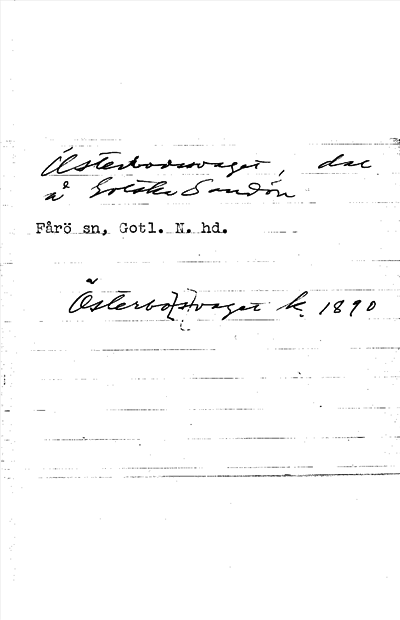 Österbodsvaget, dal
å Gotska Sandön
Fårö sn, Gotl. N. hd.
Österbo[s]vaget k. 1890